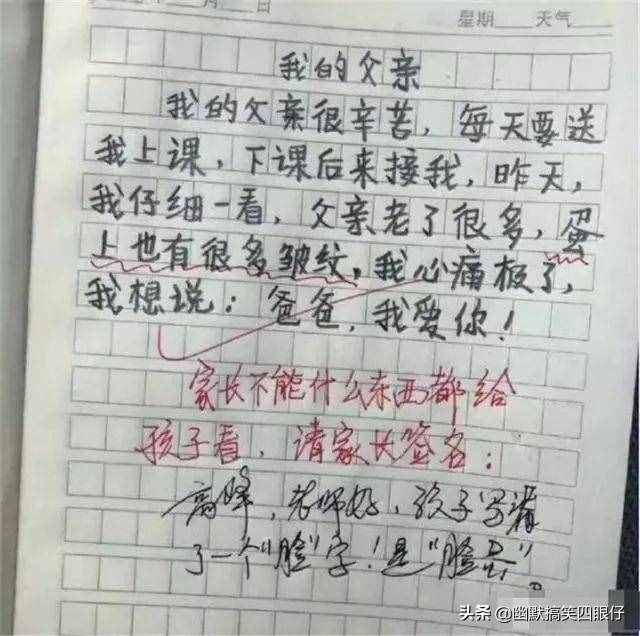 月 日 星期 天气
我的父亲
我的父亲很辛苦，每天要送
我上课，下课后来接我，昨天，
我仔细一看，父亲老了很多，蛋
上也有很多皱纹，我心痛极了，
我想说：爸爸，我爱你！
家长不能什么东西都给
孩子看，请家长签名：
高峰，老师好，孩子写漏
了一个"脸"字！是"脸蛋"。
头条 @幽默搞笑四眼仔